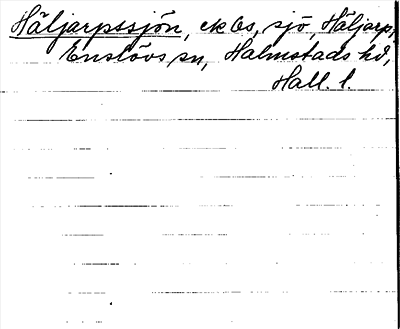 Häljarpssjön, ek Os, sjö, Häljarp,
Enslövs sn, Halmstads hd,
Hall. l.